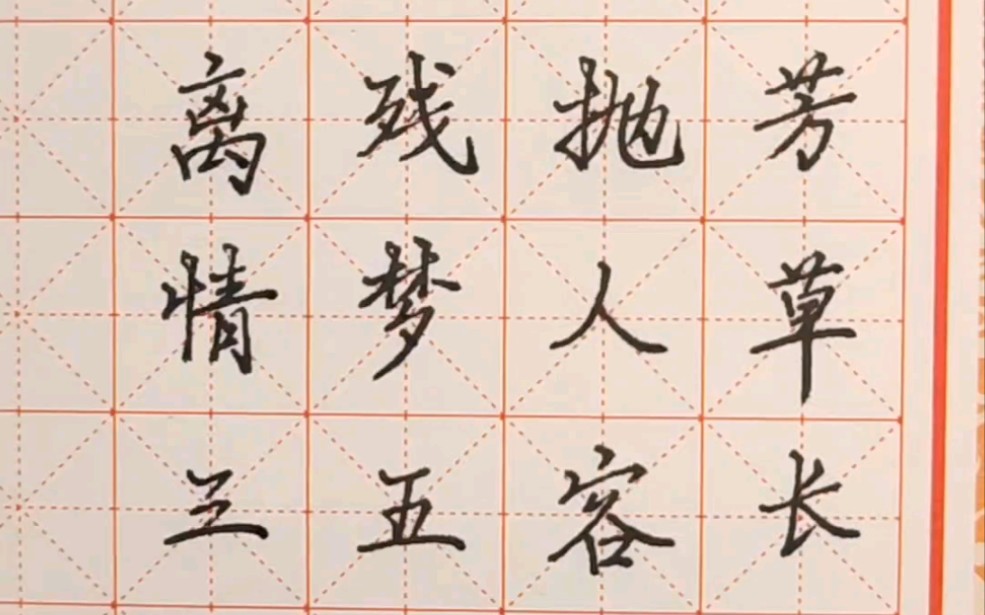 芳草长
抛人容
残梦五
离情三